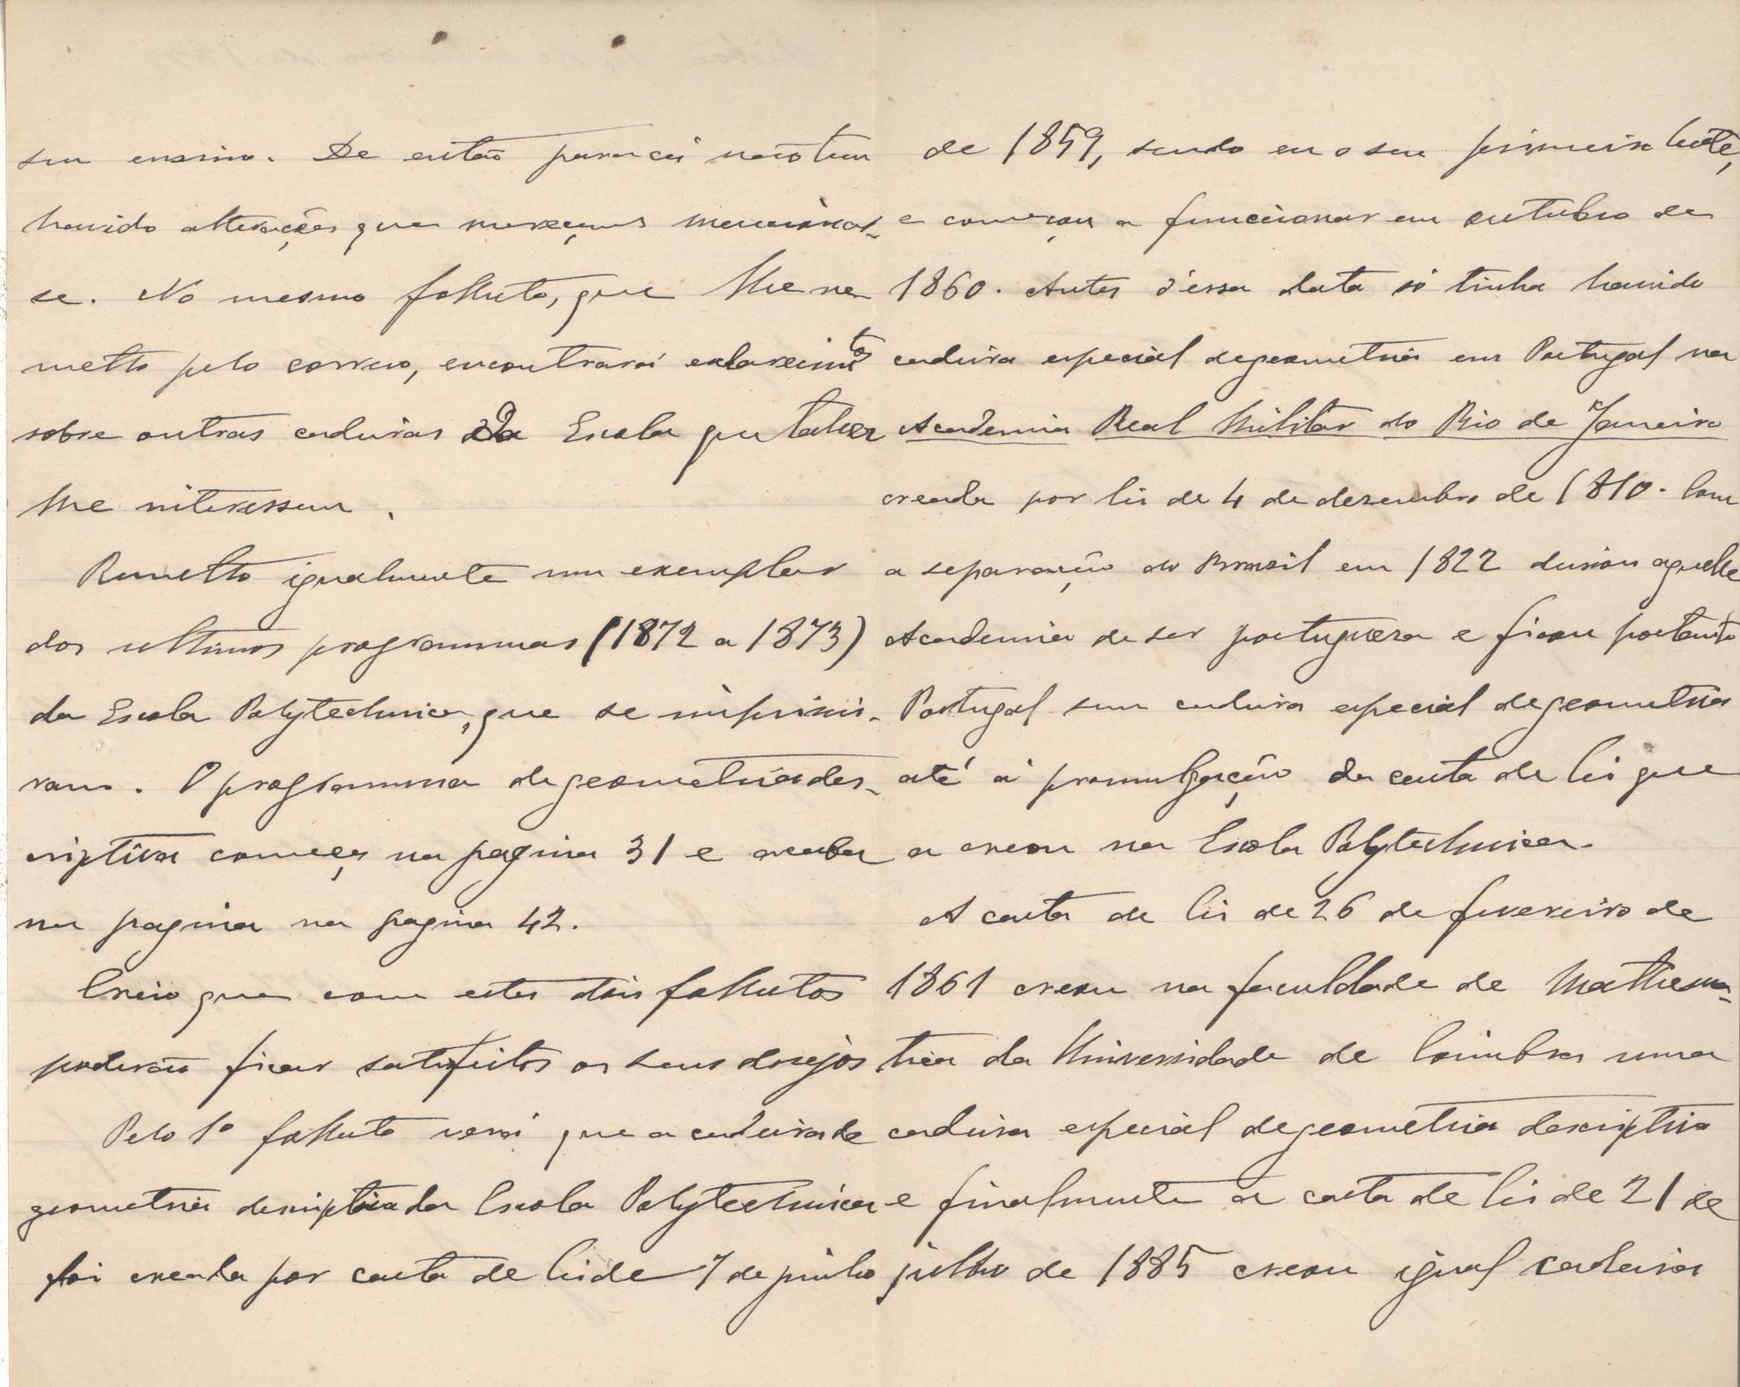 seu ensino. De então para cá não tem
havido alterações que mereçam mencionar-
se. No mesmo folheto, que lhe re
metto pelo correio, encontrará esclarecimtos
sobre outras cadeiras da Escola que talvez
lhe interessem.
Remetto igualmente um exemplar
dos ultimos programmas (1872 a 1873)
da Escola Polytechnica, que se imprimi-
ram. O programma de geometria des-
criptiva começa na pagina 31 e acaba
na pagina na pagina 42.
Creio que com estes dois folhetos
poderão ficar satisfeitos os seus desejos
Pelo 1º folheto verá que a cadeira de
geometria descriptiva da Escola Polytechnica
foi creada por carta de lei de 7 de junho
de 1859, sendo eu o seu primeiro lente,
e começou a funccionar em outubro de
1860. Antes d'essa data só tinha havido
cadeira especial de geometria em Portugal na
Academia Real Militar do Rio de Janeiro
creada por lei de 4 de dezembro de 1810. Com
a separação do Brasil em 1822 deixou aquella
Academia de ser portugueza e ficou portanto
Portugal sem cadeira especial de geometria
até á promulgação da carta de lei que
a creou na Escola Polytechnica.
A carta de lei de 26 de fevereiro de
1861 creou na faculdade de Mathema-
tica da Universidade de Coimbra uma
cadeira especial de geometria descriptiva
e finalmente a carta de lei de 21 de
julho de 1885 creou igual cadeira